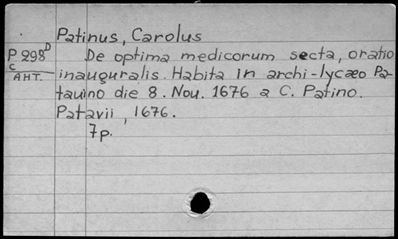 Patinus, Carolus
P 298 D
C
AHT.
De optima medicorum secta, oratio
inauguralis. Habita in archi-lycæo Pa-
tauino die 8. Nou. 1676 a C. Patino.
Patavii, 1676.
7p.